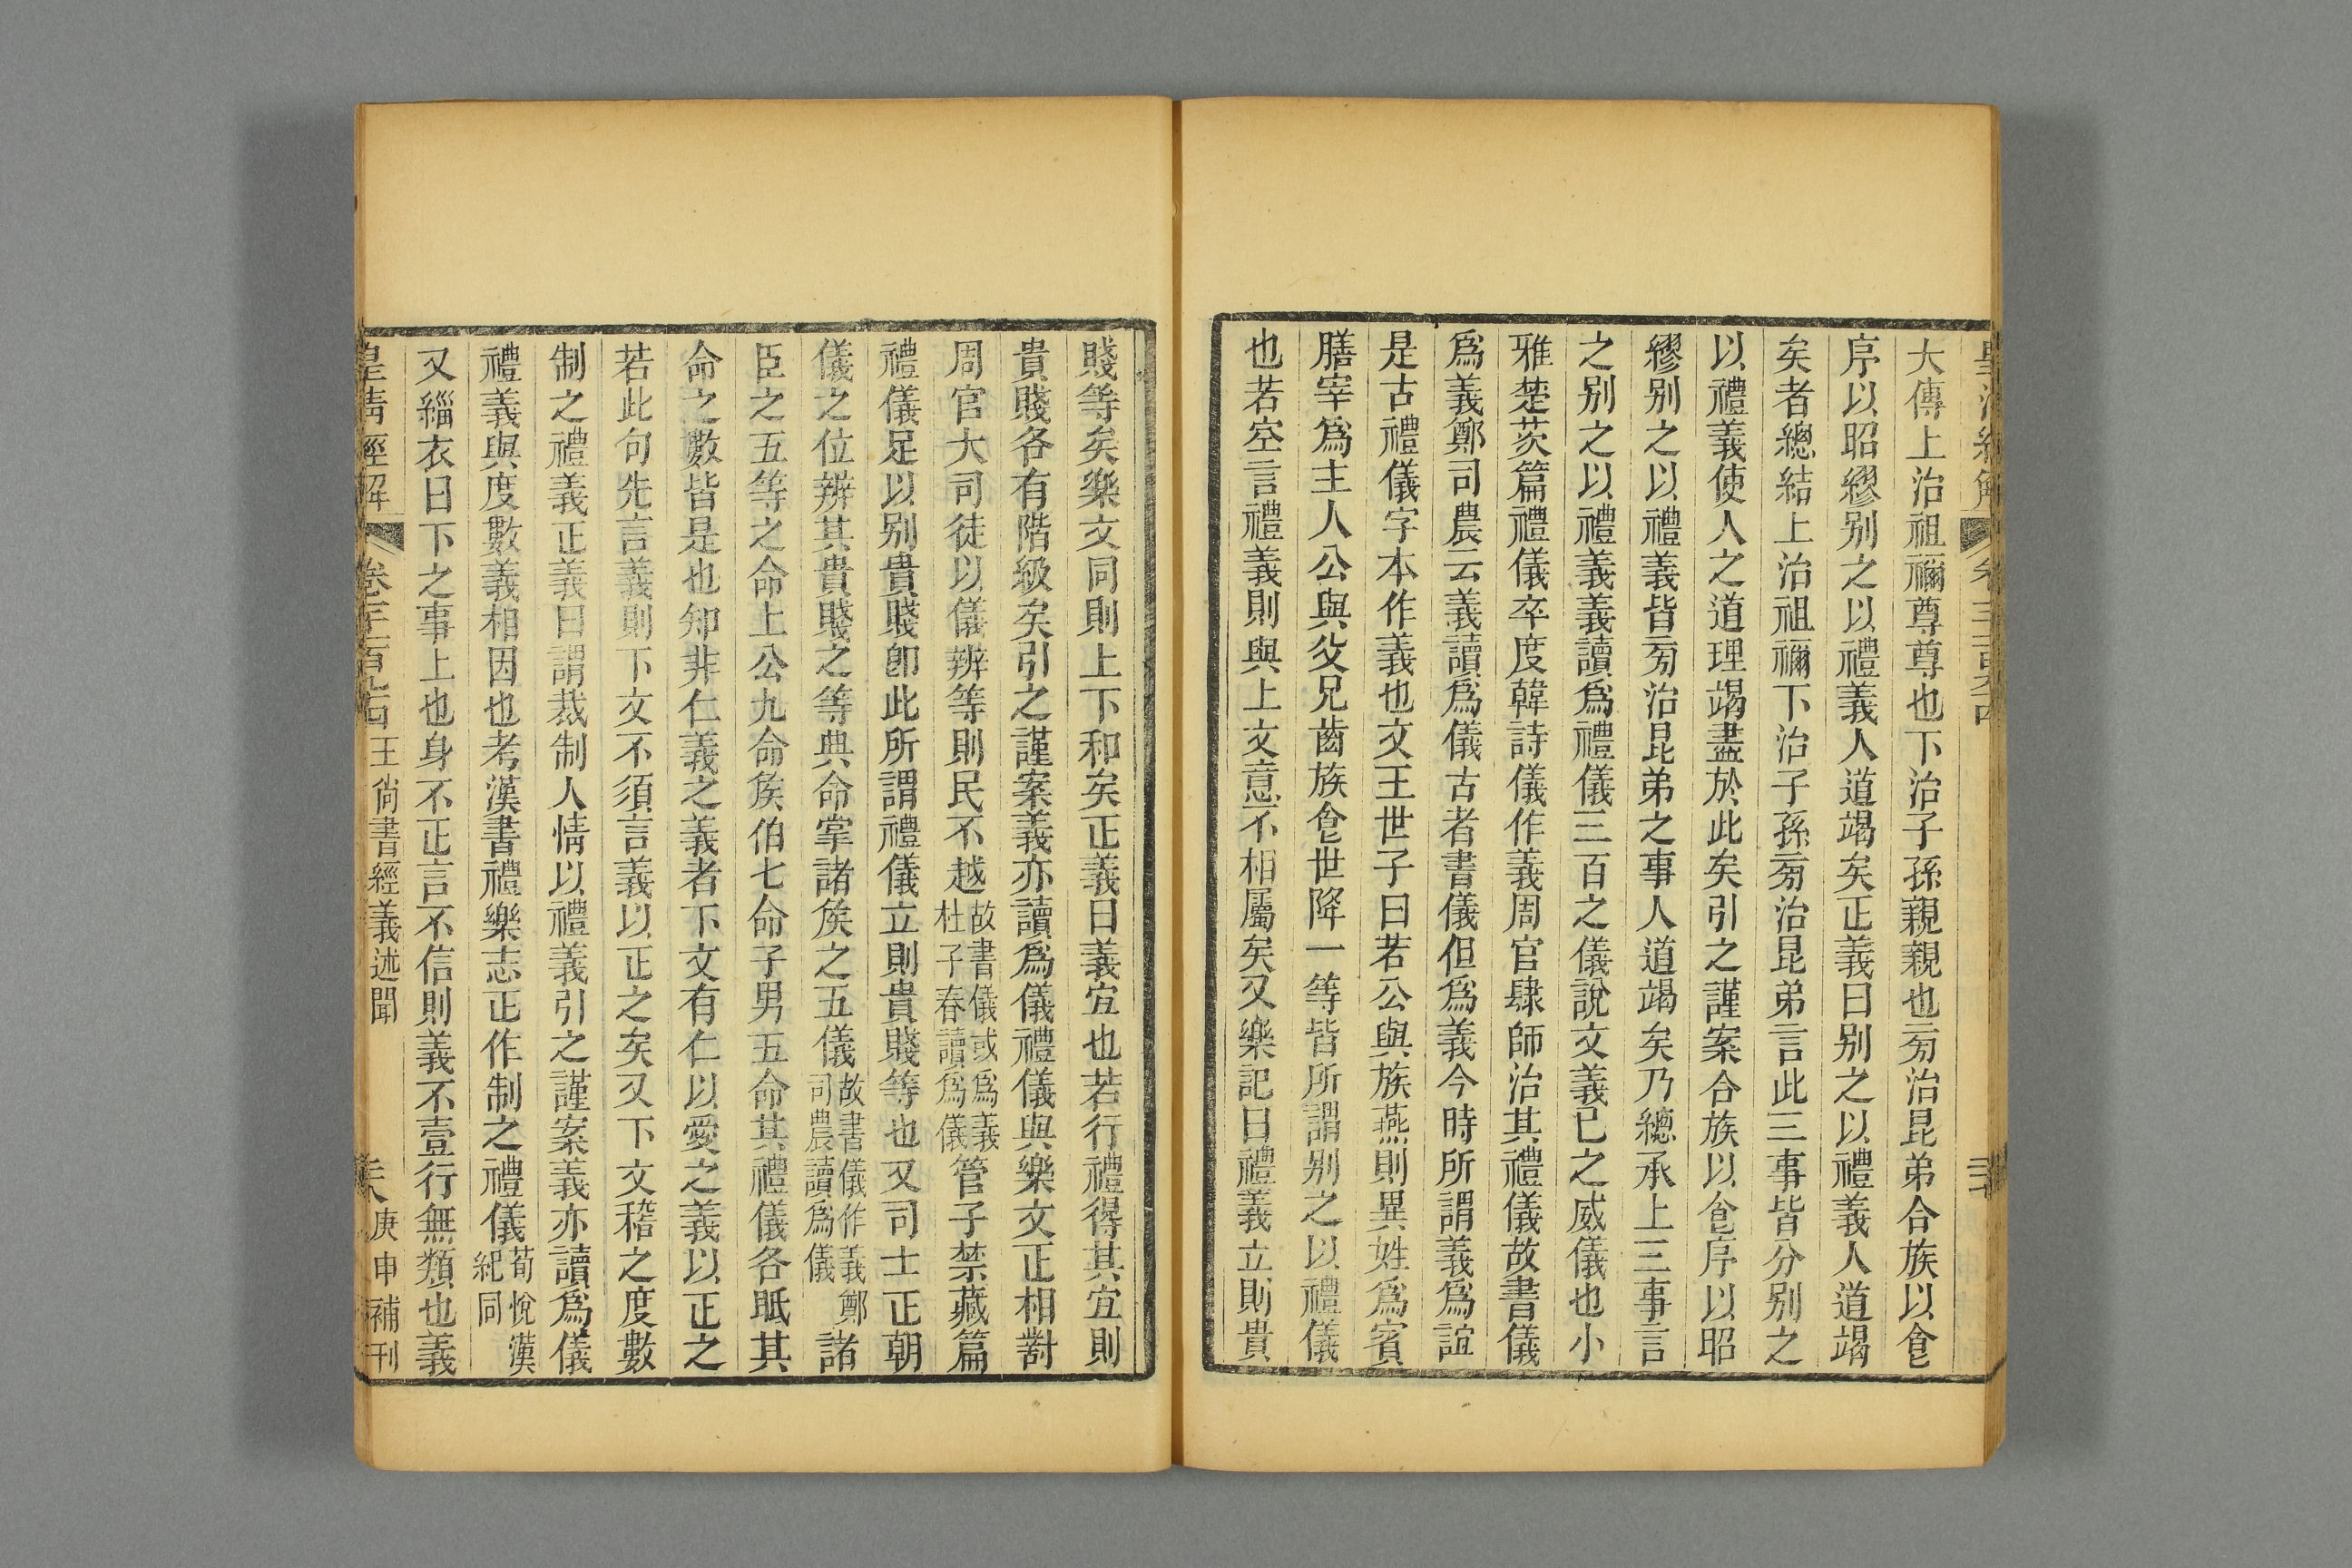 大傳上治祖禰尊尊也下治子孫親親也㫄治昆弟合族以𠊊
序以昭繆别之以禮義人道竭矣正義曰别之以禮義人道竭
矣者總結上治祖禰下治子孫㫄治昆弟言此三事皆分别之
以禮義使人之道理竭盡於此矣引之謹案合族以𠊊序以昭
繆别之以禮義皆㫄治昆弟之事人道竭矣乃總承上三事言
之别之以禮義義讀爲禮儀三百之儀說文義已之威儀也小
雅楚茨篇禮儀卒度韓詩儀作義周官肆師治其禮儀故書儀
爲義鄭司農云義讀爲儀古者書儀但爲義今時所謂義爲誼
是古禮儀字本作義也文王世子曰若公與族燕則異姓爲賓
膳宰爲主人公與父兄齒族𠊊世降一等皆所謂别之以禮儀
也若空言禮義則與上文意不相屬矣又樂記曰禮義立則貴
賤等矣樂文同則上下和矣正義曰義宜也若行禮得其宜則
貴賤各有階級矣引之謹案義亦讀爲儀禮儀與樂文正相對
周官大司徒以儀辨等則民不越故書儀或爲義杜子春讀爲儀管子禁藏篇
禮儀足以别貴賤卽此所謂禮儀立則貴賤等也又司士正朝
儀之位辨其貴賤之等典命掌諸矦之五儀故書儀作義鄭司農讀爲儀諸
臣之五等之命上公九命矦伯七命子男五命其禮儀各眡其
命之數皆是也知非仁義之義者下文有仁以愛之義以正之
若此句先言義則下文不須言義以正之矣又下文稽之度數
制之禮義正義曰謂裁制人情以禮義引之謹案義亦讀爲儀
禮義與度數義相因也考漢書禮樂志正作制之禮儀荀悅漢紀同
又緇衣曰下之事上也身不正言不信則義不壹行無類也義
皇清經解 王尙書經義述聞 庚申補刊